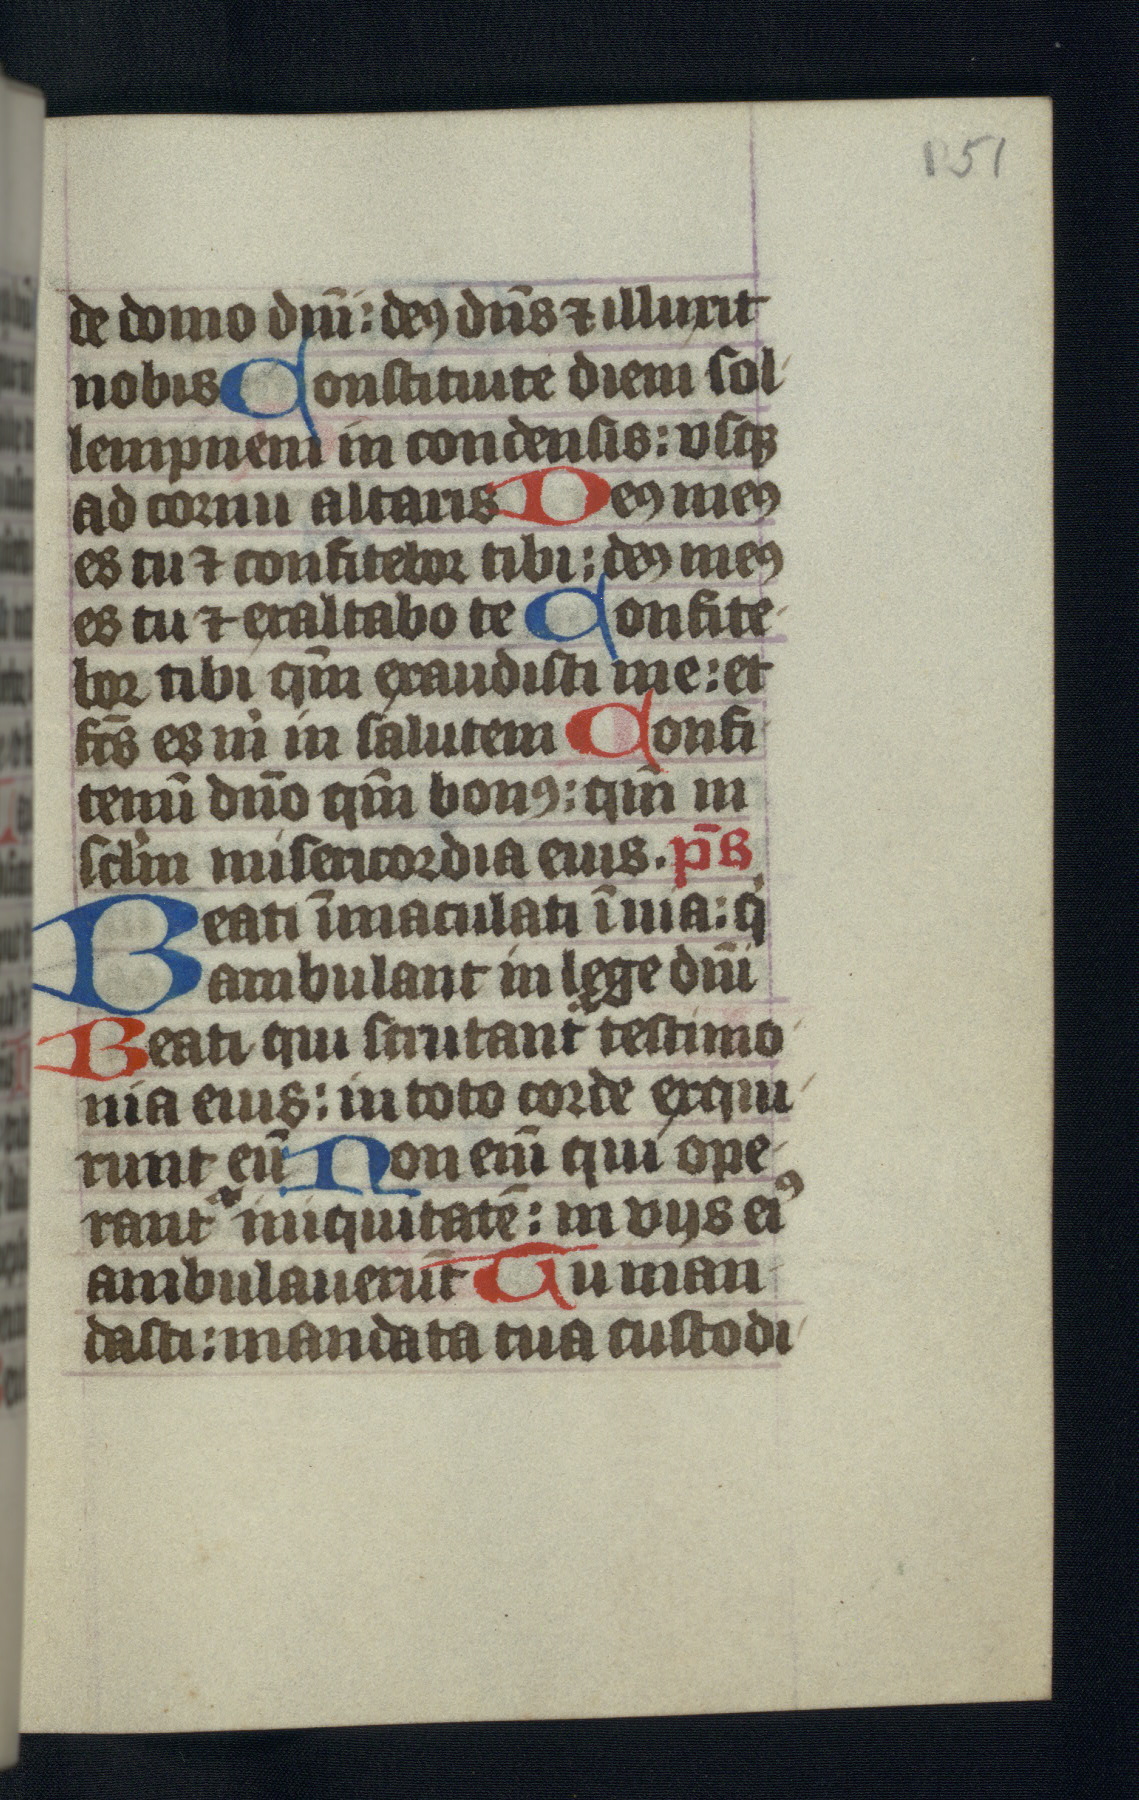 151
de domo dn̄i: deꝰ dn̄s ⁊ illuxit
nobis Constituite diem sol
lempnem in condensis: vsqꝫ
ad cornu altaris Deꝰ meꝰ
es tu ⁊ confitebor tibi: deꝰ meꝰ
es tu ⁊ exaltabo te Confite
bor tibi qm̄ exaudisti me: et
fcs̄ es m̍ in salutem Confi
temī dn̄o qm̄ bonꝰ: qm̄ in
sclm̄ misericordia eius. ps̄
Beati īmaculati ī uia: q̍
ambulant in lege dn̄i
Beati qui scrutant᷑ testimo
nia eius: in toto corde exqui
runt eū Non em̄ qui ope
rant᷑ iniquitatē: in vijs eiꝰ
ambulauerūt Tu man
dasti: mandata tua custodi